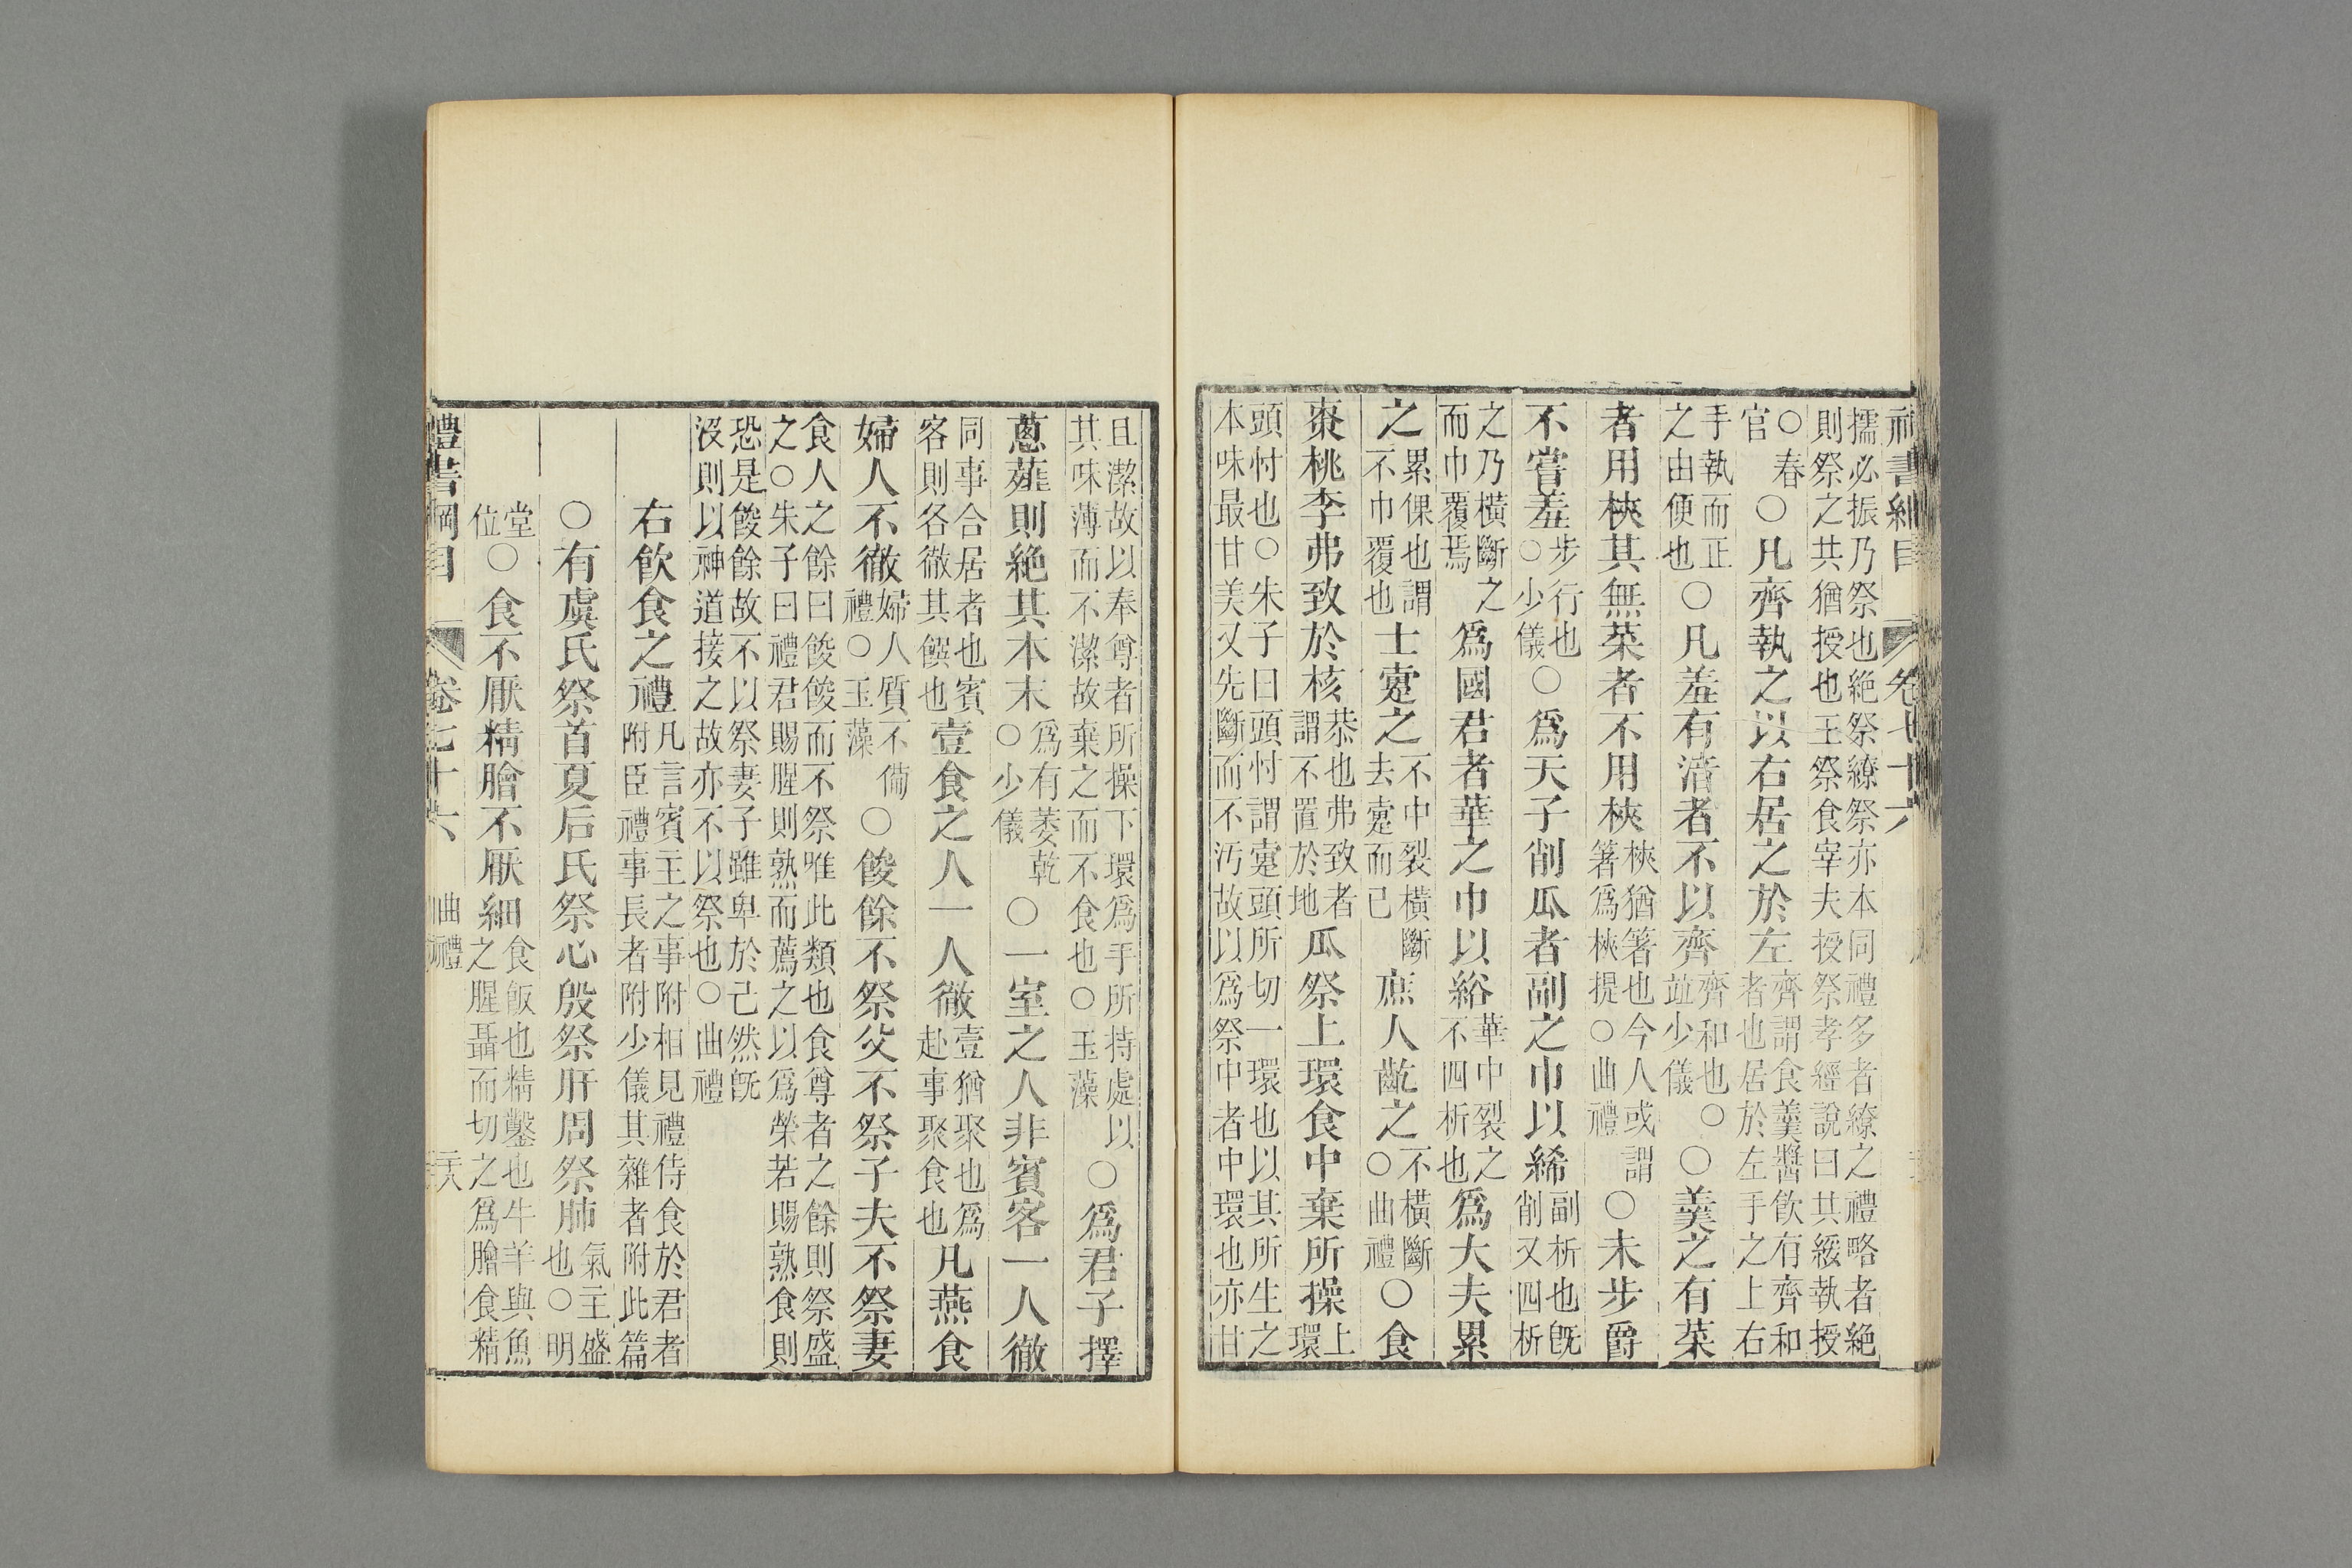 禮書綱目 卷七十六
擩必振乃祭也絕祭繚祭亦本同禮多者繚之禮略者絕
則祭之共猶授也王祭食宰夫授祭孝經說曰共綏執授
○春
官
○凡齊執之以右居之於左
齊謂食羹醬飲有齊和
者也居於左手之上右
手執而正
之由便也
○凡羞有湆者不以齊
齊和也○
並少儀
○羹之有菜
者用梜其無菜者不用梜
梜猶箸也今人或謂
箸爲梜提○曲禮
○未步爵
不嘗羞
步行也
○少儀
○爲天子削瓜者副之巾以絺
副析也既
削又四析
之乃橫斷之
而巾覆焉
爲國君者華之巾以綌
華中裂之
不四析也
爲大夫累
之
累倮也謂
不巾覆也
士疐之
不中裂橫斷
去疐而已
庶人齕之
不橫斷
○曲禮
○食
棗桃李弗致於核
恭也弗致者
謂不置於地
瓜祭上環食中棄所操
上
環
頭忖也○朱子曰頭忖謂疐頭所切一環也以其所生之
本味最甘美又先斷而不汚故以爲祭中者中環也亦甘
且潔故以奉尊者所操下環爲手所持處以
其味薄而不潔故棄之而不食也○玉藻
○爲君子擇
蔥薤則絕其本末
爲有萎乾
○少儀
○一室之人非賓客一人徹
同事合居者也賓
客則各徹其饌也
壹食之人一人徹
壹猶聚也爲
赴事聚食也
凡燕食
婦人不徹
婦人質不備
禮○玉藻
○餕餘不祭父不祭子夫不祭妻
食人之餘曰餕餕而不祭唯此類也食尊者之餘則祭盛
之○朱子曰禮君賜腥則熟而薦之以爲榮若賜熟食則
恐是餕餘故不以祭妻子雖卑於己然旣
沒則以神道接之故亦不以祭也○曲禮
右飲食之禮
凡言賓主之事附相見禮侍食於君者
附臣禮事長者附少儀其雜者附此篇
○有虞氏祭首夏后氏祭心殷祭肝周祭肺
氣主盛
也○明
堂
位
○食不厭精膾不厭細
食飯也精鑿也牛羊與魚
之腥聶而切之爲膾食精
禮書綱目 卷七十六 曲禮 二十八